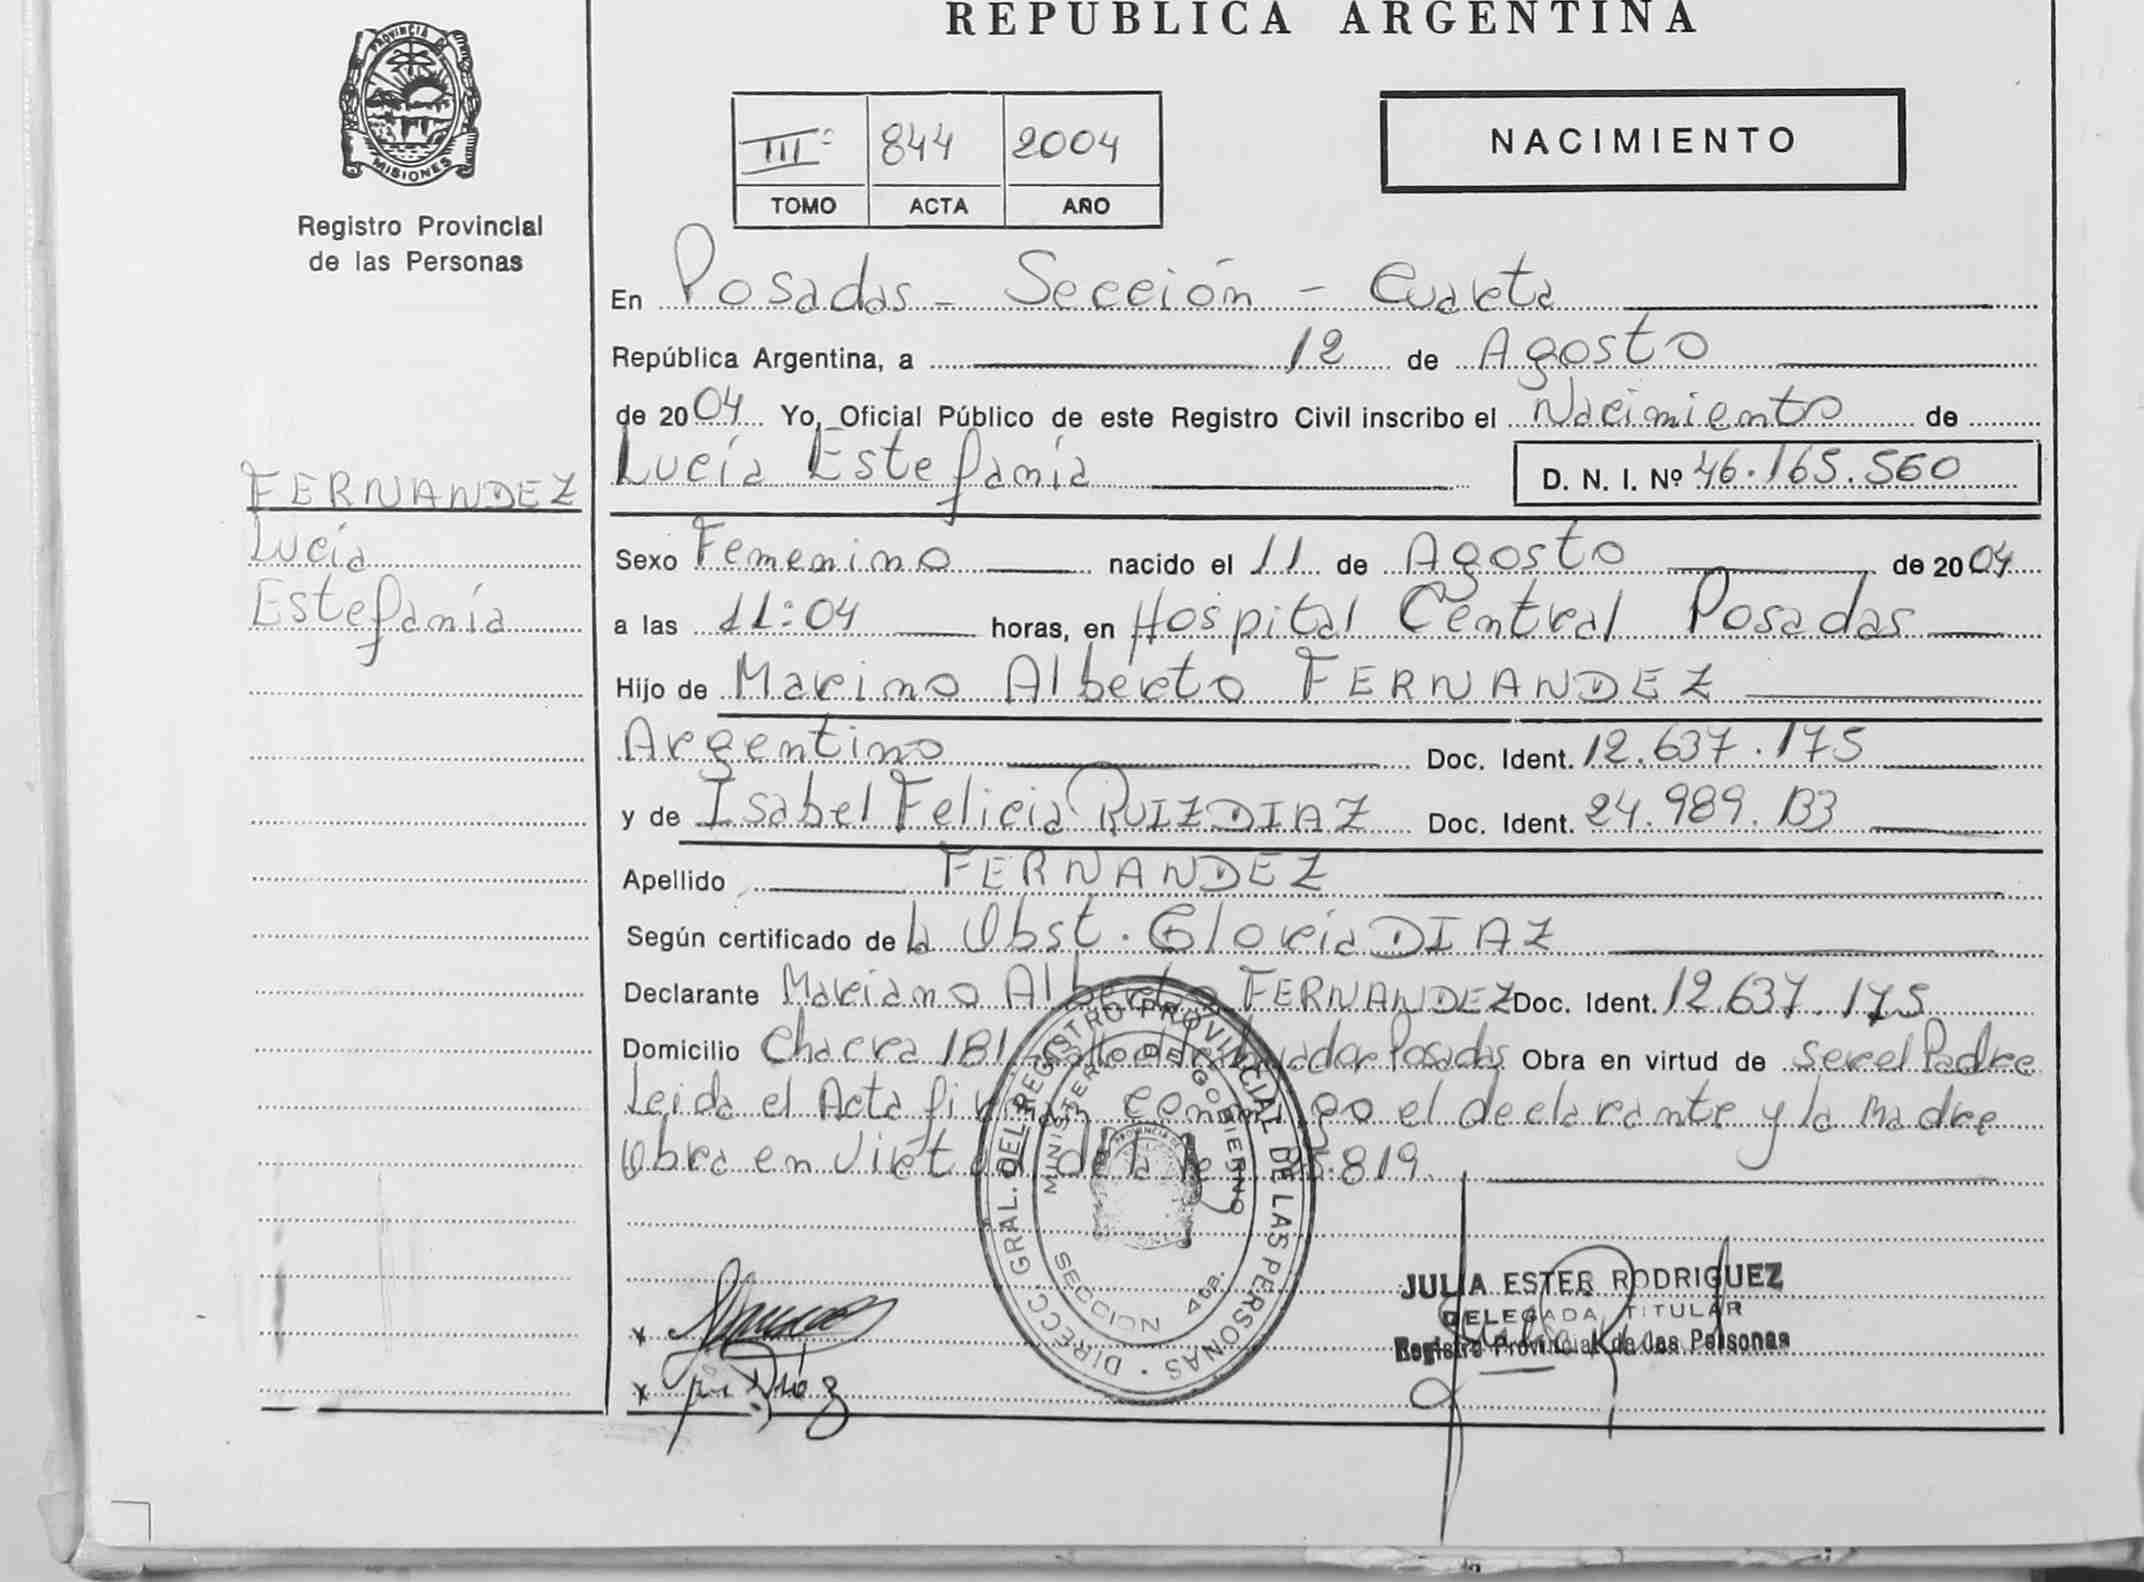 REPUBLICA ARGENTINA
PROVINCIA DE
MISIONES
Registro Provincial
de las Personas
III 844 2004
TOMO ACTA AÑO
NACIMIENTO
En Posadas - Sección - Cuarta
República Argentina, a 12 de Agosto
de 2004 Yo, Oficial Público de este Registro Civil inscribo el Nacimiento de
Lucía Estefanía D. N. I. Nº 46.165.560
FERNANDEZ
Lucía
Estefanía
Sexo Femenino nacido el 11 de Agosto de 2004
a las 11:04 horas, en Hospital Central Posadas
Hijo de Marino Alberto FERNANDEZ
Argentino Doc. Ident. 12.637.175
y de Isabel Felicia RUIZDIAZ Doc. Ident. 24.989.133
Apellido FERNANDEZ
Según certificado de la Obst. Gloria DIAZ
Declarante Mariano Alberto FERNANDEZ Doc. Ident. 12.637.175
Domicilio Chacra 181 Posadas Obra en virtud de ser el Padre
Leida el Acta firman conmigo el declarante y la madre
Obra en Virtud de la .819.
DIRECC. GRAL. DEL REGISTRO PROVINCIAL DE LAS PERSONAS
MINISTERIO DE GOBIERNO
SECCION 4ta.
JULIA ESTER RODRIGUEZ
DELEGADA TITULAR
Registro Provincial de las Personas
x
x